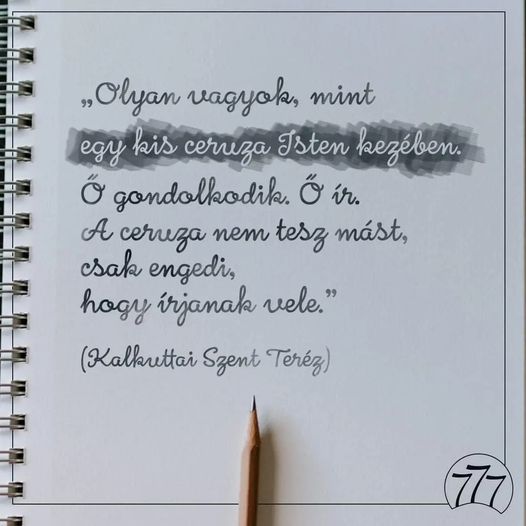 „Olyan vagyok, mint
egy kis ceruza Isten kezében.
Ő gondolkodik. Ő ír.
A ceruza nem tesz mást,
csak engedi,
hogy írjanak vele.”
(Kalkuttai Szent Teréz)
777